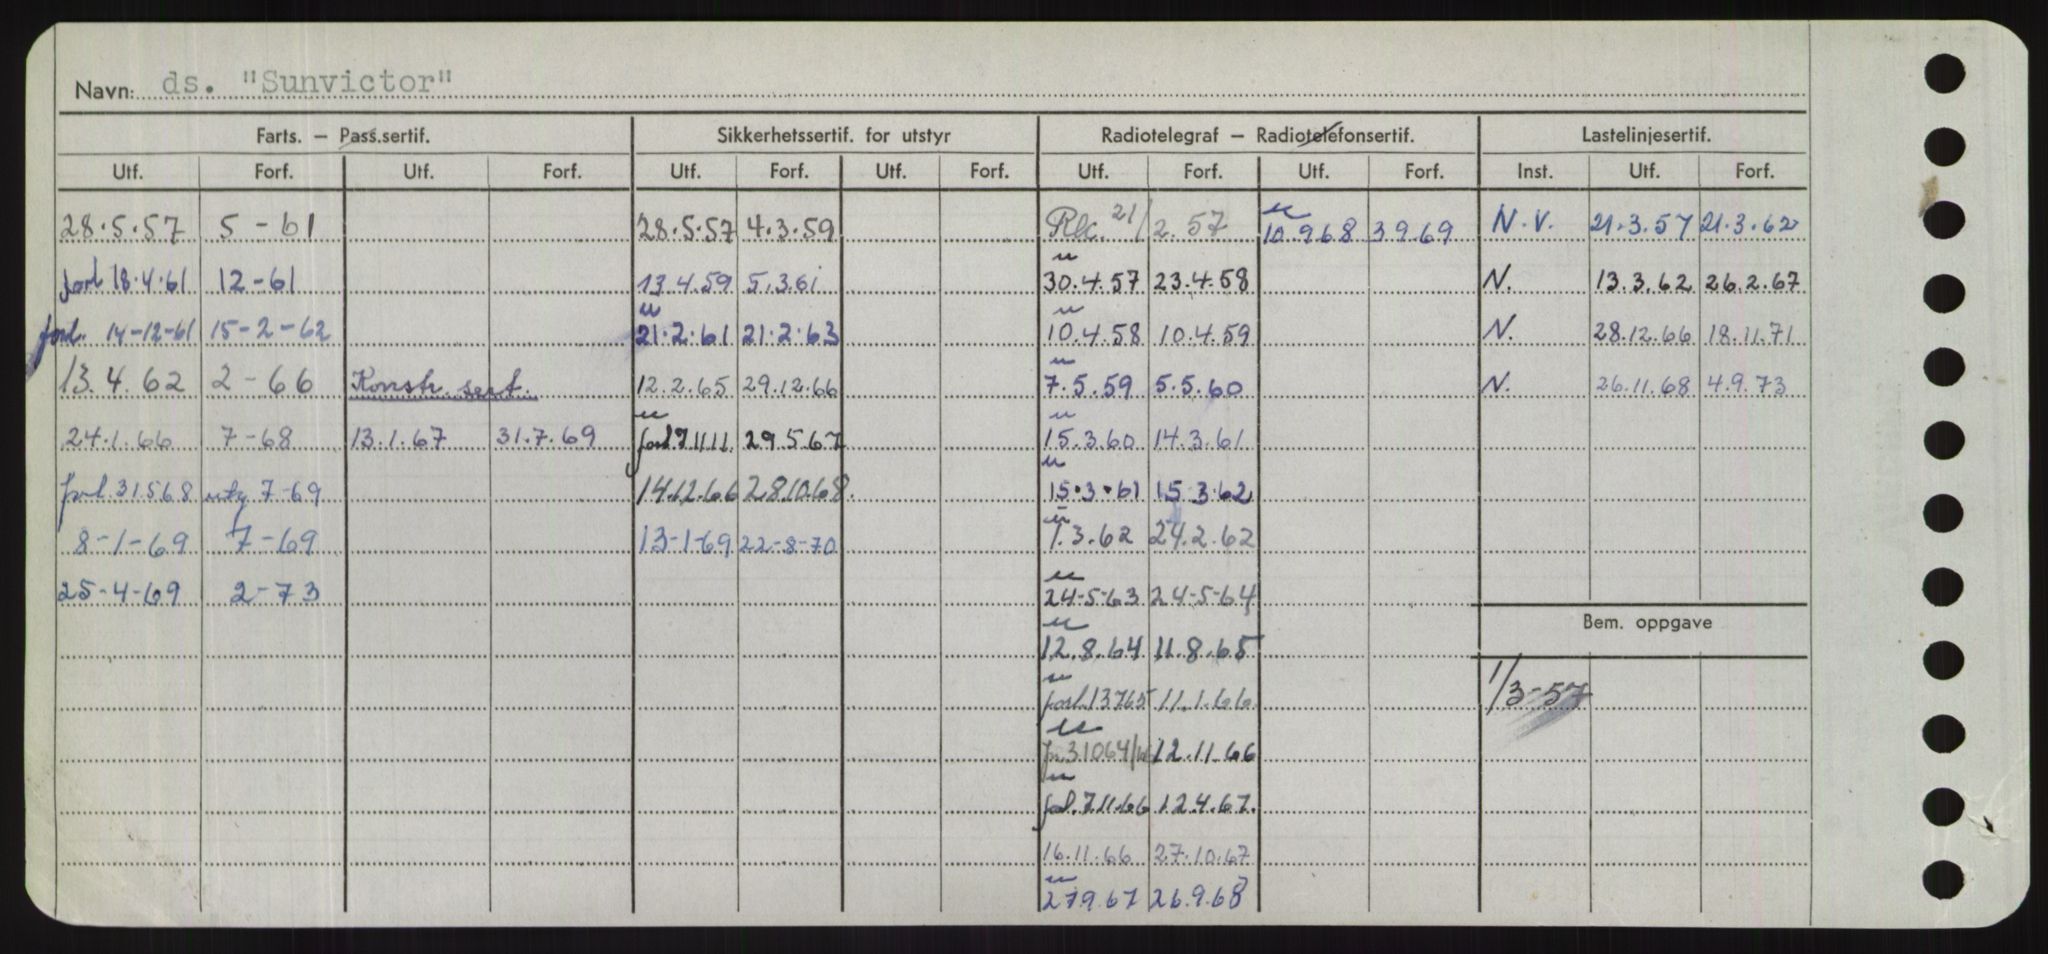 Navn: ds. "Sunvictor"
Farts. – Pass.sertif. Sikkerhetssertif. for utstyr Radiotelegraf – Radiotelefonsertif. Lastelinjesertif.
Utf. Forf. Utf. Forf. Utf. Forf. Utf. Forf. Utf. Forf. Utf. Forf. Inst. Utf. Forf.
28.5.57 5-61 28.5.57 4.3.59 21/2.57 10.9.68 3.9.69 N.V. 21.3.57 21.3.62
forl 18.4.61 12-61 13.4.59 5.3.61 30.4.57 23.4.58 N. 13.3.62 26.2.67
forl. 14-12-61 15-2-62 21.2.61 21.2.63 10.4.58 10.4.59 N. 28.12.66 18.11.71
13.4.62 2-66 Konstr. sert. 12.2.65 29.12.66 7.5.59 5.5.60 N. 26.11.68 4.9.73
24.1.66 7-68 13.1.67 31.7.69 forl. 29.5.67 15.3.60 14.3.61
forl. 31.5.68 7-69 14.12.66 28.10.68. 15.3.61 15.3.62
8-1-69 7-69 13-1-69 22-8-70 1.3.62 24.2.62
25-4-69 2-73 24-5-63 24-5-64
Bem. oppgave
12.8.64 11.8.65
1/3-57
forl. 13.7.65 11.1.66
12.11.66
forl. 7.11.66 12.4.67.
16.11.66 27.10.67
27.9.67 26.9.68